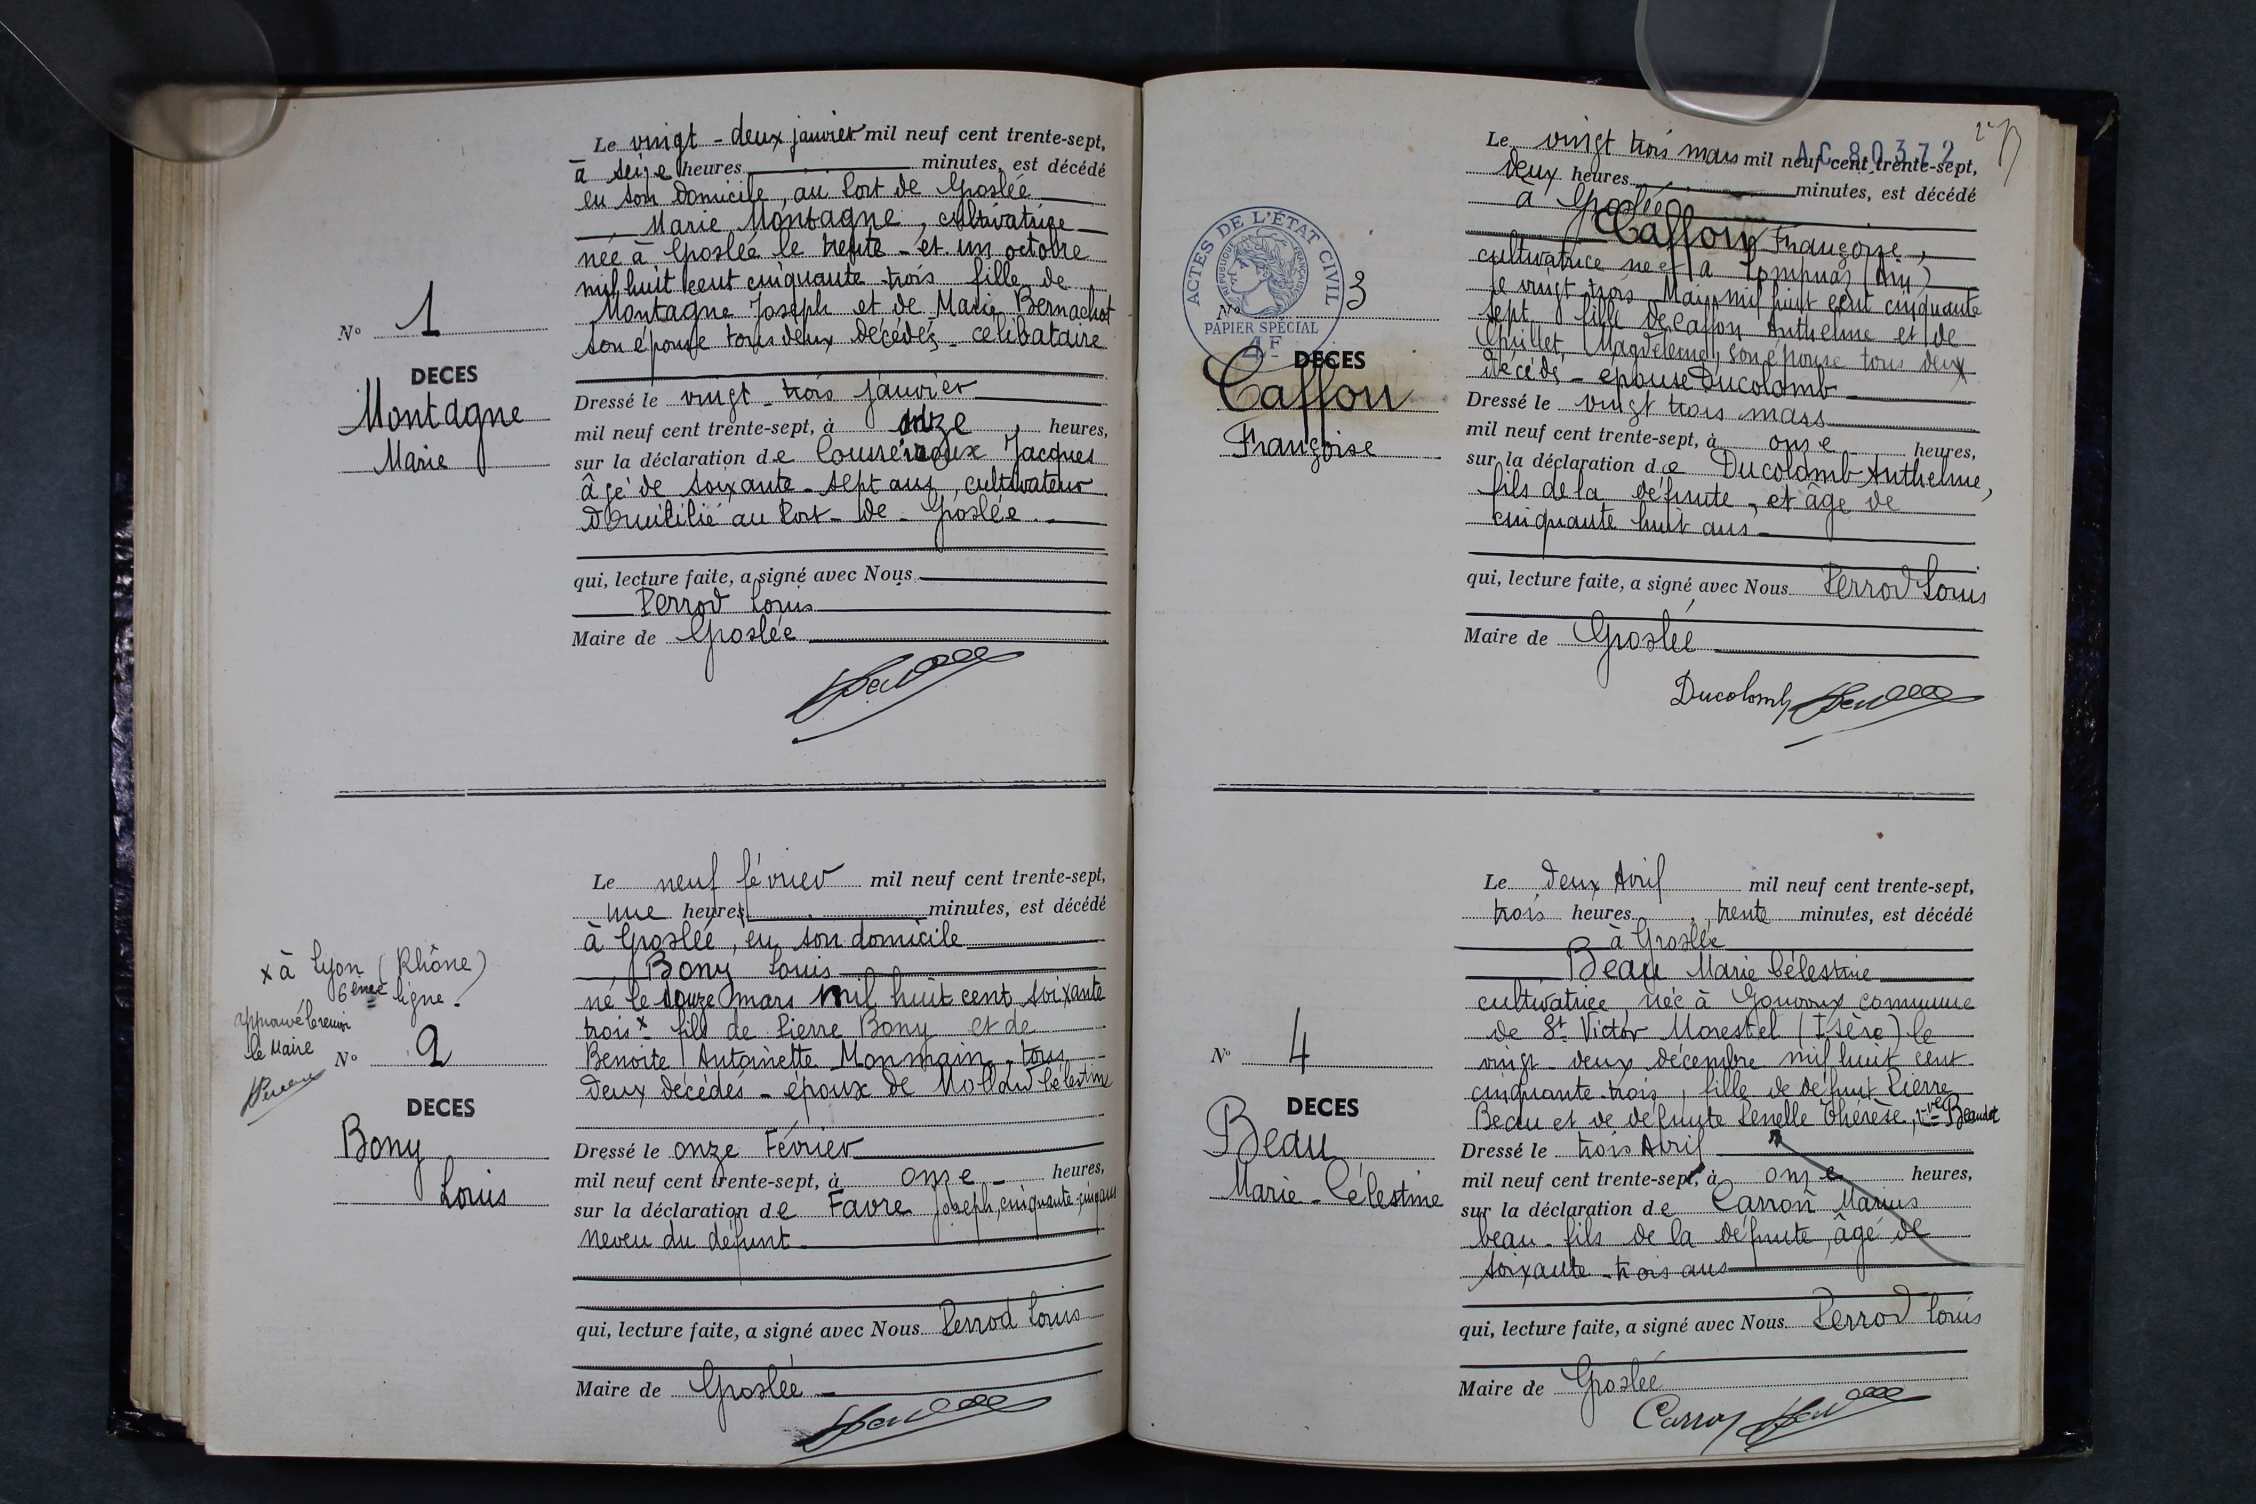 Le vingt-deux janvier mil neuf cent trente-sept,
à seize heures minutes, est décédé
en son domicile, au Port de Groslée
Marie Montagne, cultivatrice
née à Groslée le trente-et-un octobre
mil huit cent cinquante trois fille de
Montagne Joseph et de Marie Bernachot
son épouse tous deux décédés - célibataire
N° 1
DECES
Montagne
Marie
Dressé le vingt-trois janvier
mil neuf cent trente-sept, à onze heures,
sur la déclaration de Jacques
âgé de soixante-sept ans, cultivateur
domicilié au Port-de-Groslée.
qui, lecture faite, a signé avec Nous
Perrod Louis
Maire de Groslée
Le neuf février mil neuf cent trente-sept,
une heures minutes, est décédé
à Groslée, en son domicile
Bony Louis
né le douze mars mil huit cent soixante
trois x fils de Pierre Bony et de
Benoite Antoinette Monmain - tous
deux décédés - époux de Célestine
x à Lyon (Rhône)
6ème ligne.
approuvé le renvoi
le Maire
N° 2
DECES
Bony
Louis
Dressé le onze Février
mil neuf cent trente-sept, à onze heures,
sur la déclaration de Favre Joseph, cinquante cinq ans
neveu du défunt
qui, lecture faite, a signé avec Nous Perrod Louis
Maire de Groslée
AC 80372
Le vingt trois mars mil neuf cent trente-sept,
deux heures minutes, est décédé
à Groslée
Caffon Françoise,
cultivatrice née à Lompnaz (Ain)
le vingt trois Mai mil huit cent cinquante
sept fille de Caffon Anthelme et de
Magdeleine, son épouse tous deux
décédés - épouse Ducolomb
ACTES DE L'ÉTAT CIVIL
RÉPUBLIQUE FRANÇAISE
PAPIER SPÉCIAL
4 F
N° 3
DECES
Caffon
Françoise
Dressé le vingt trois mars
mil neuf cent trente-sept, à onze heures,
sur la déclaration de Ducolomb Anthelme,
fils de la défunte, et âgé de
cinquante huit ans
qui, lecture faite, a signé avec Nous Perrod Louis
Maire de Groslée
Ducolomb
Le deux Avril mil neuf cent trente-sept,
trois heures, trente minutes, est décédé
à Groslée
Beau Marie Célestine
cultivatrice, née à Gouvoux commune
de St Victor Morestel (Isère) le
vingt-deux décembre mil huit cent
cinquante-trois, fille de défunt Pierre
Beau et de défunte Thérèse, Vve Beaudet
N° 4
DECES
Beau
Marie-Célestine
Dressé le trois Avril
mil neuf cent trente-sept, à onze heures,
sur la déclaration de Carron Marius
beau-fils de la défunte, âgé de
soixante-trois ans
qui, lecture faite, a signé avec Nous Perrod Louis
Maire de Groslée
Carron